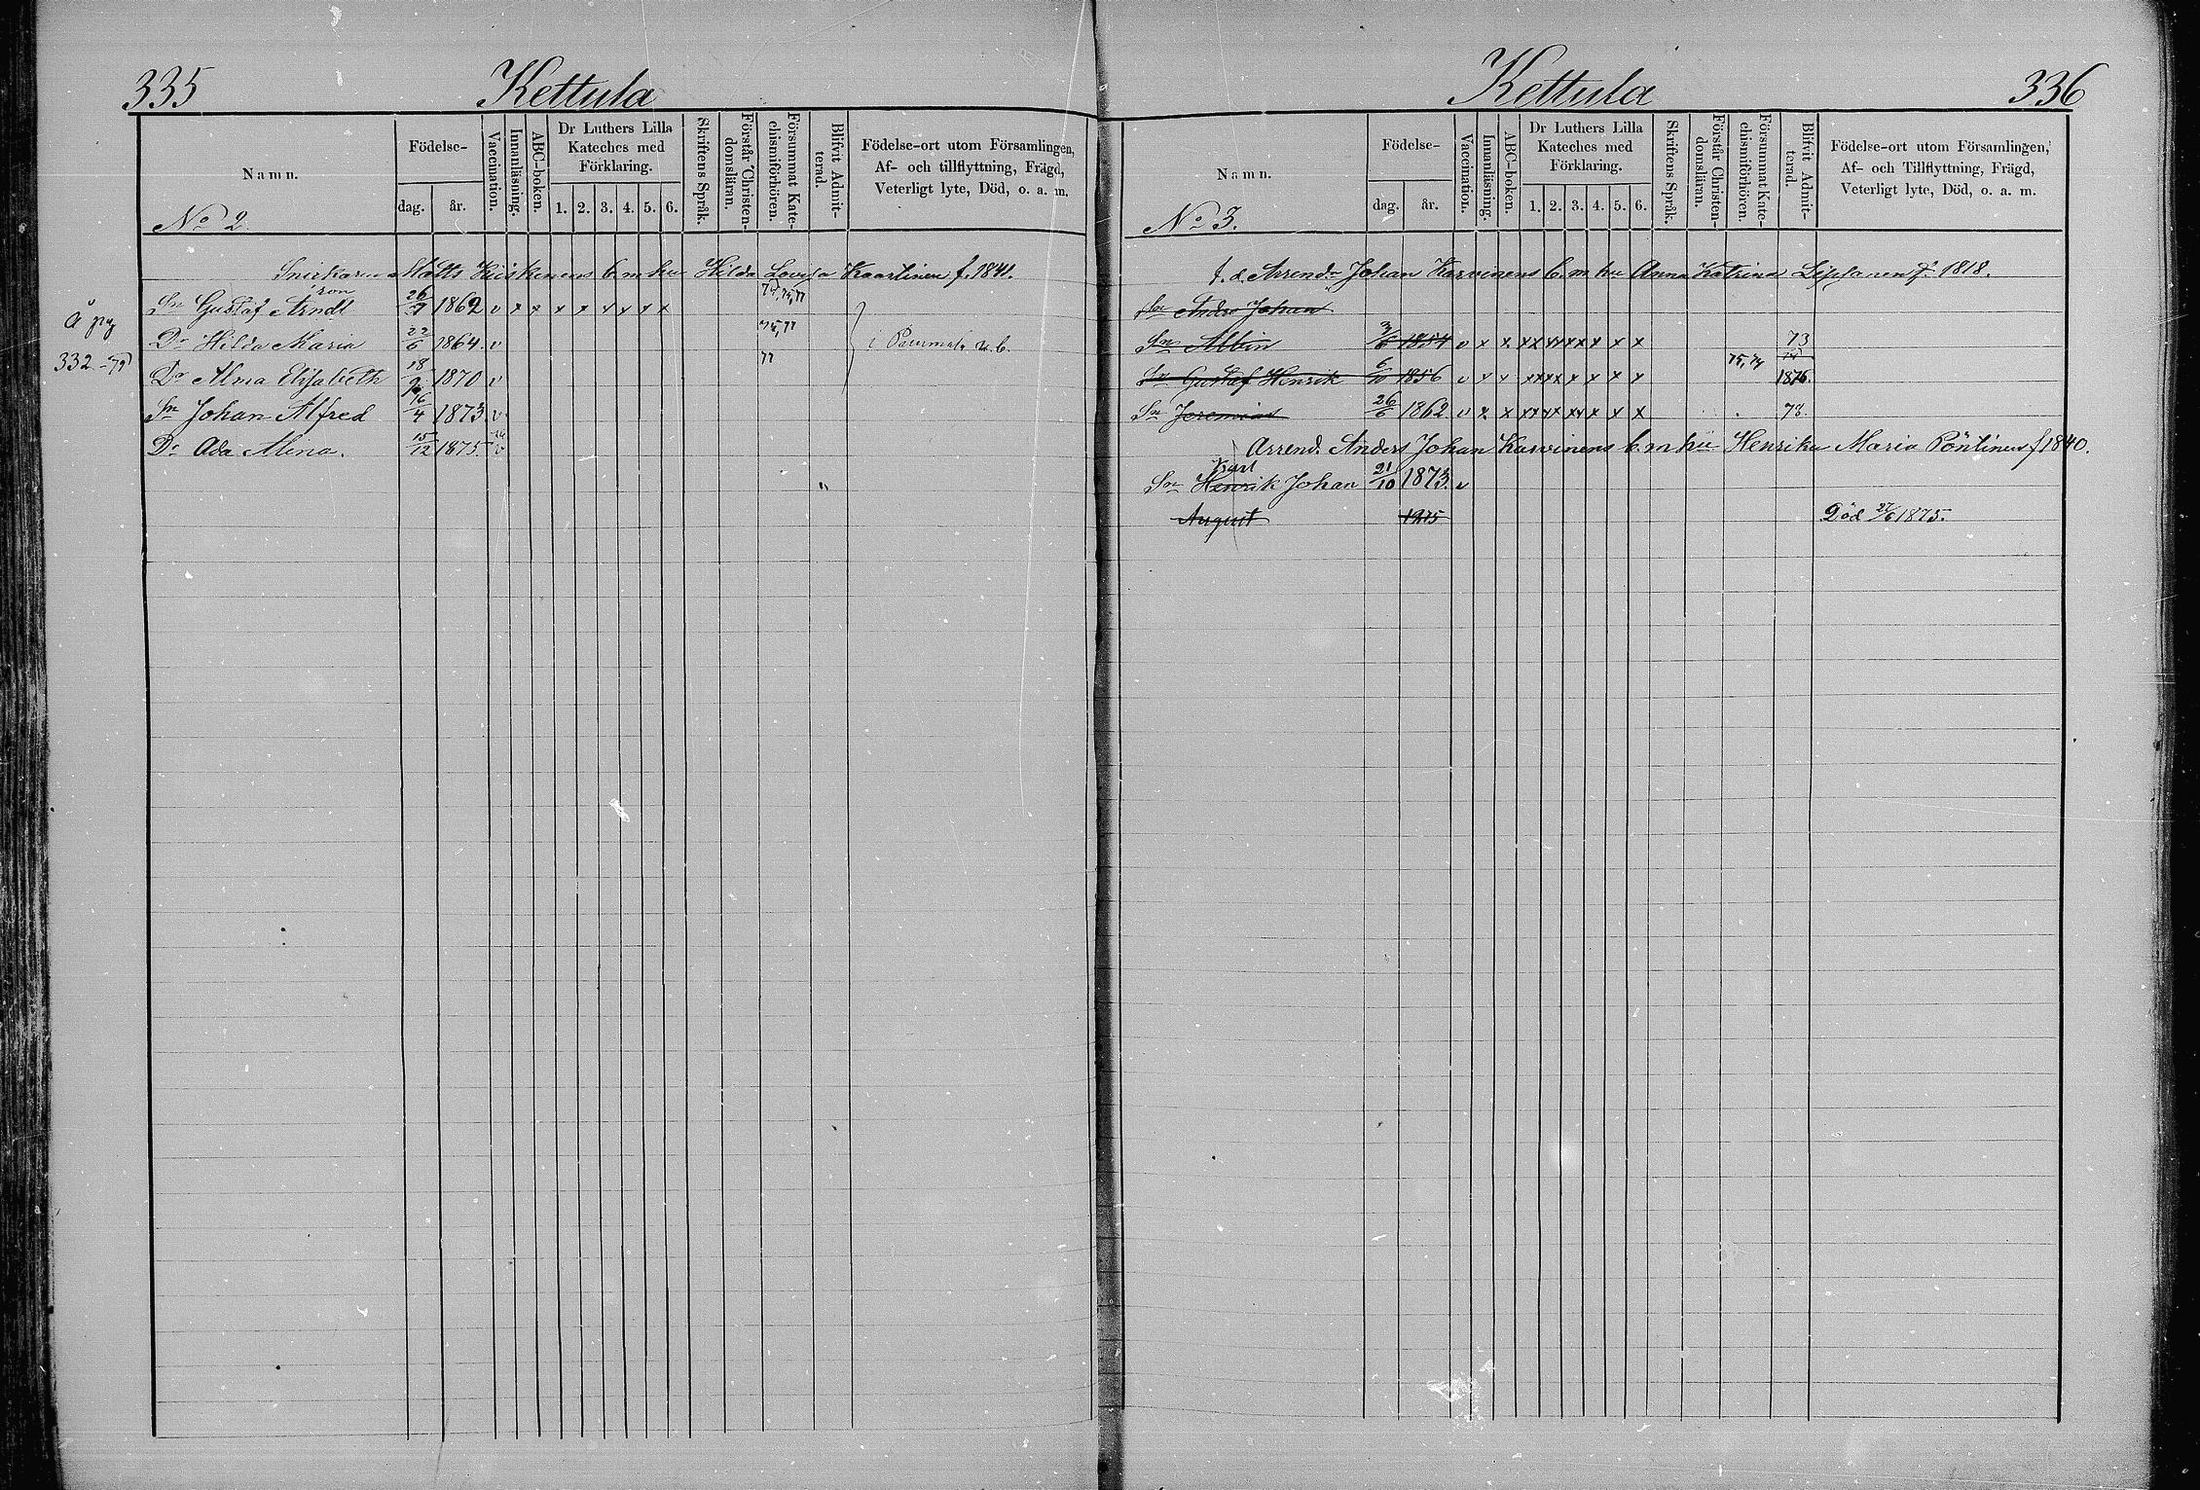 335 Kettula
Namn.
Födelse-
dag. år.
Vaccination.
Innanläsning.
ABC-boken.
Dr Luthers Lilla
Kateches med
Förklaring.
1. 2. 3. 4. 5. 6.
Skriftens Språk.
Förstår Christen-
domsläran.
Försummat Kate-
chismiförhören.
Blifvit Admit-
terad.
Födelse-ort utom Församlingen,
Af- och tillflyttning, Frägd,
Veterligt lyte, Död, o. a. m.
No 2.
Matts b. m. hu Hilda Lovisa Kaartinen f. 1841.
Sn Gustaf Arndt 1862 v x x x x x x x x
Dr Hilda Maria 22/6 1864. v 75, 77
Dr Alma Elisabeth 1870 v 77
Sn Johan Alfred 16/4 1873. v
Dr Ada Mina. 15/12 1875. v
å pag
332 -79
Kettula 336
Namn.
Födelse-
dag. år.
Vaccination.
Innanläsning.
ABC-boken.
Dr Luthers Lilla
Kateches med
Förklaring.
1. 2. 3. 4. 5. 6.
Skriftens Språk.
Förstår Christen-
domsläran.
Försummat Kate-
chismiförhören.
Blifvit Admit-
terad.
Födelse-ort utom Församlingen,
Af- och Tillflyttning, Frägd,
Veterligt lyte, Död, o. a. m.
No 3.
f. d. Arrend. Johan Karvinens b. m. hu Anna Katrina f. 1818.
Sn Anders Johan
Sn Albin 3/6 1854 v x x xx xx xx x x x 73
Sn Gustaf Henrik 6/10 1856 v x x xx xx x x x x 75, 74 1876.
Sn Jeremias 26/6 1862 v x x xx xx xx x x x 78.
Arrend. Anders Johan Karvinens b. m. hu Henrika Maria Pöntinen f 1840.
Karl
Sn Henrik Johan 21/10 1873. v
August 1875 Död 27/6 1875.